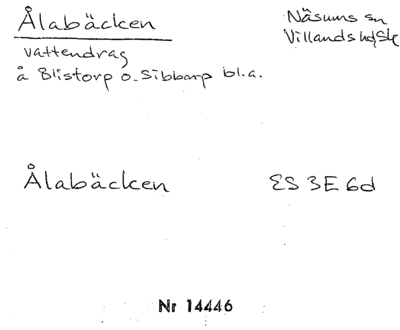 Ålabäcken
Näsums sn
Villands hd, Sk
vattendrag
å Blistorp o. Sibbarp bl.a.
Ålabäcken
ES 3E 6d
Nr 14446